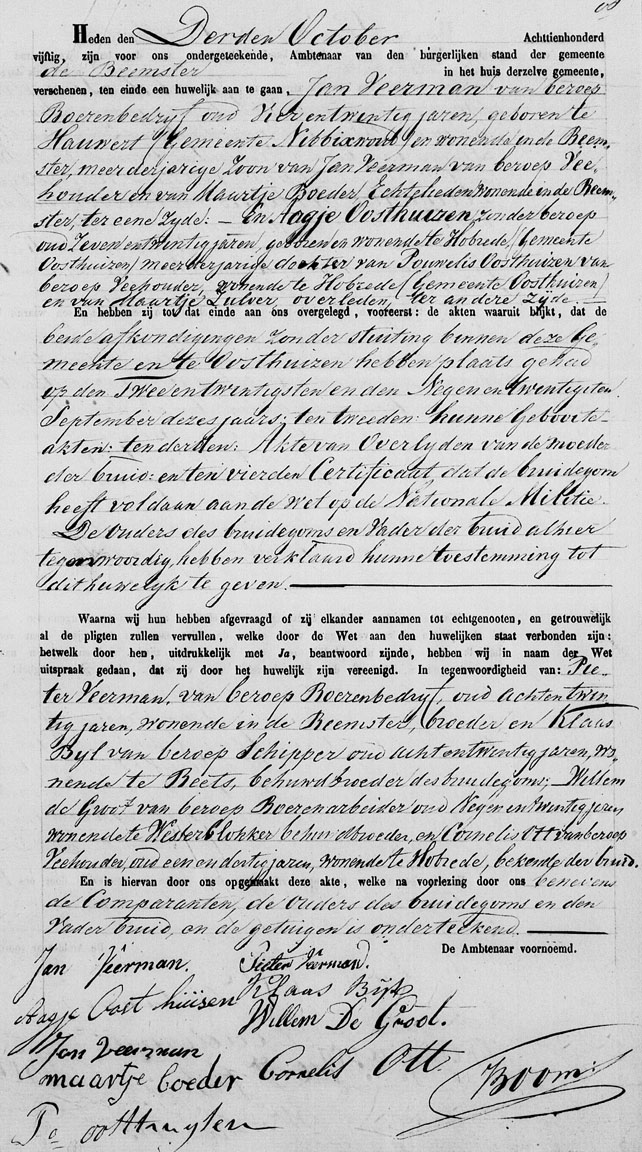 Heden den Derden October Achttienhonderd
vijftig, zijn voor ons ondergeteekende, Ambtenaar van den burgerlijken stand der gemeente
de Beemster in het huis derzelve gemeente,
verschenen, ten einde een huwelijk aan te gaan, Jan Veerman van beroep
Boerenbedryf oud Vier entwintig jaren, geboren te
Hauwert (Gemeente Nibbixwoud) en wonende inde Beem-
ster, meerderjarige Zoon van Jan Veerman van beroep Vee-
houder en van Maartje Boeder, Echtelieden wonende inde Beem-
ster, ter eene Zyde: — En Aagje Oosthuizen zonder beroep
oud Zeven entwintig jaren, geboren en wonende te Hobrede (Gemeente
Oosthuizen) meerderjarige dochter van Pouwelis Oosthuizen van
beroep Veehouder, wonende te Hobrede (Gemeente Oosthuizen)
en van Maartje Zulver, overleden, ter andere zijde. —
En hebben zij tot dat einde aan ons overgelegd, vooreerst: de akten waaruit blijkt, dat de
beide afkondigingen zonder stuiting binnen deze Ge-
meente en te Oosthuizen hebben plaats gehad
op den Twee entwintigsten en den Negen en twintigsten
September dezes jaars; ten tweeden: hunne Geboorte-
akten: ten derden: Akte van Overlyden van de moeder
der bruid: en ten vierden Certificaat, dat de bruidegom
heeft voldaan aan de wet op de Nationale Militie.
De ouders des bruidegoms en Vader der bruid alhier
tegenwoordig, hebben verklaard hunne toestemming tot
dit huwelyk te geven.
Waarna wij hun hebben afgevraagd of zij elkander aannamen tot echtgenooten, en getrouwelijk
al de pligten zullen vervullen, welke door de Wet aan den huwelijken staat verbonden zijn:
hetwelk door hen, uitdrukkelijk met Ja, beantwoord zijnde, hebben wij in naam der Wet
uitspraak gedaan, dat zij door het huwelijk zijn vereenigd. In tegenwoordigheid van: Pie-
ter Veerman, van beroep Boerenbedryf, oud achtentwin-
tig jaren, wonende in de Beemster, broeder en Klaas
Byl van beroep Schipper oud achtentwintig jaren, wo-
nende te Beets, behuwdbroeder des bruidegoms; Willem
de Groot van beroep Boerenarbeider oud Negen en twintig jaren,
wonende te Westerblokker behuwdbroeder, en Cornelis Ott van beroep
Veehouder, oud een en dertig jaren, wonende te Hobrede, bekende der bruid.
En is hiervan door ons opgemaakt deze akte, welke na voorlezing door ons benevens
de Comparanten, de ouders des bruidegoms en den
Vader bruid, en de getuigen is onderteekend.
De Ambtenaar voornoemd.
Jan Veerman. Pieter Veerman.
Aagje Oost huisen Klaas Bijl
Willem De Groot.
Jan Veerman
maartje boeder Cornelis Ott.
Boom